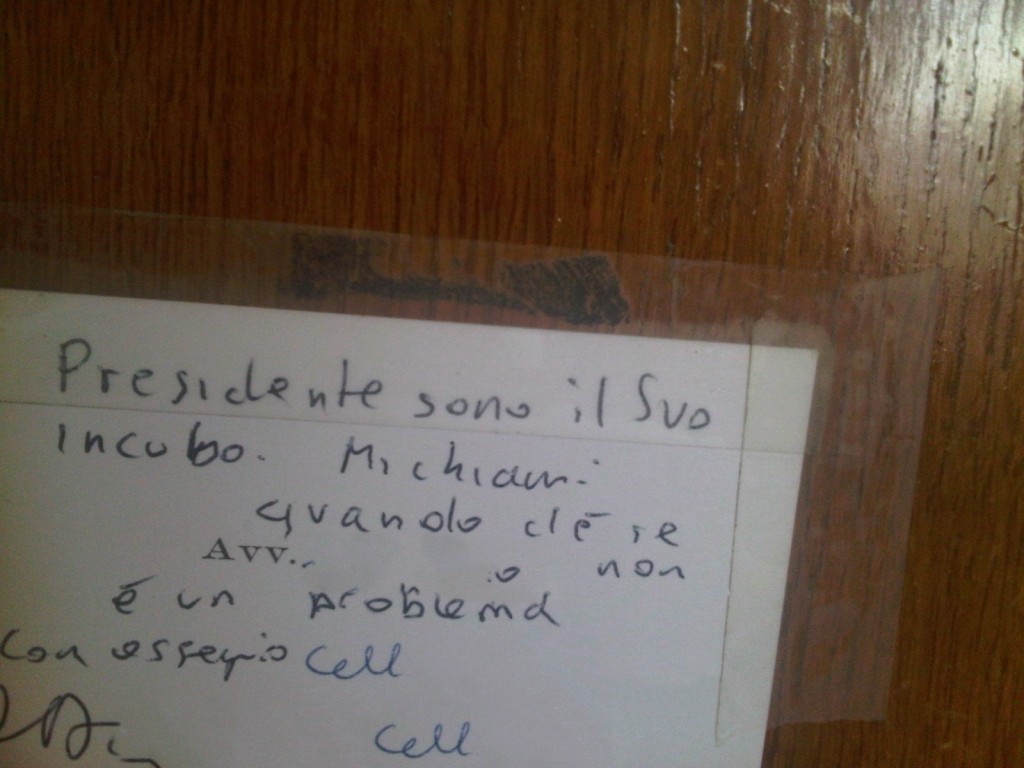 Presidente sono il Suo
incubo. Mi chiami
quando c'è se
Avv... non
è un problema
Con ossequio Cell
Cell